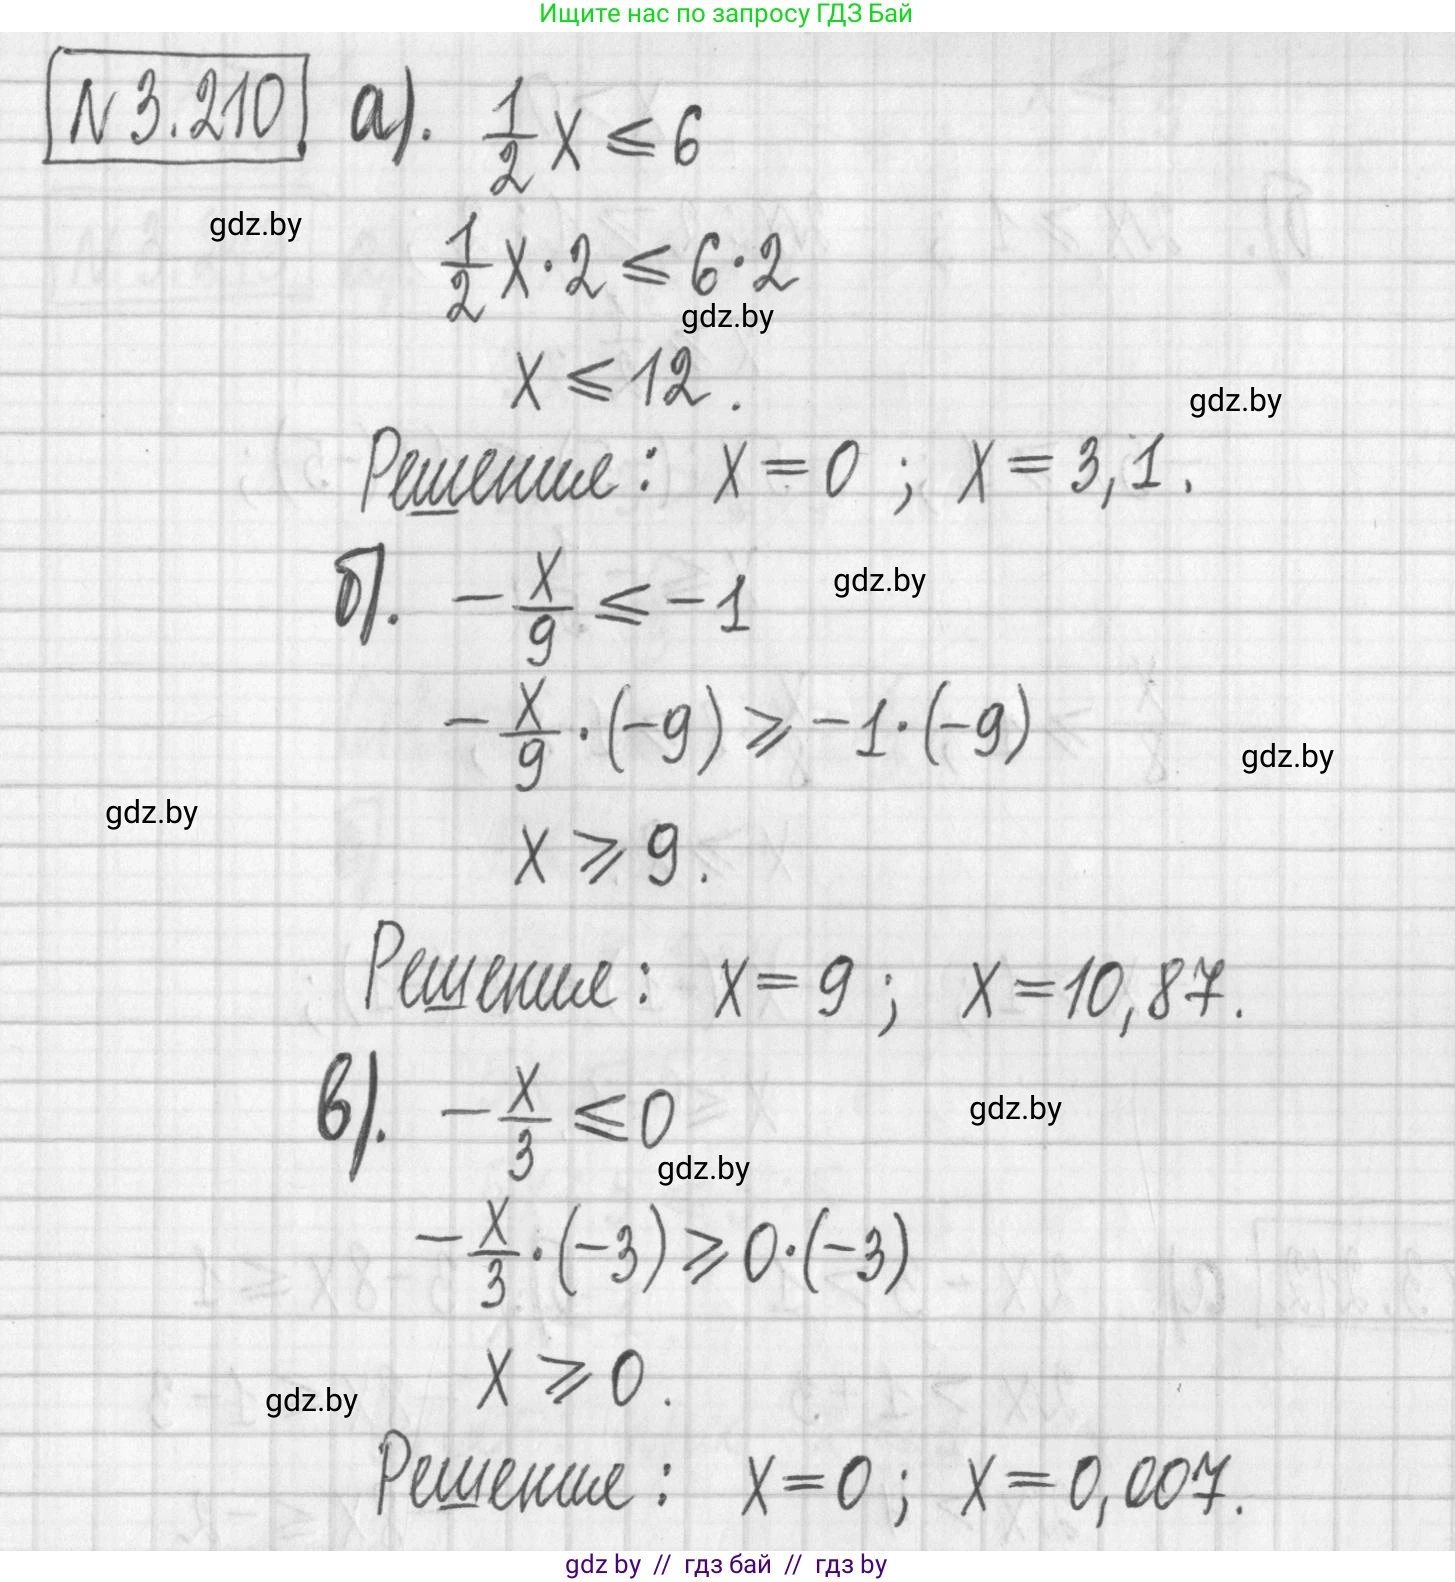 Ищите нас по запросу ГДЗ Бай
№ 3.210 а). 1/2 x ⩽ 6
gdz.by
1/2 x · 2 ⩽ 6 · 2
gdz.by
x ⩽ 12.
gdz.by
Решения: x = 0 ; x = 3,1.
б). - x/9 ⩽ -1
gdz.by
- x/9 · (-9) ⩾ -1 · (-9)
gdz.by
gdz.by
x ⩾ 9.
Решения: x = 9 ; x = 10,87.
в). - x/3 ⩽ 0
gdz.by
gdz.by
- x/3 · (-3) ⩾ 0 · (-3)
x ⩾ 0.
gdz.by
Решения: x = 0 ; x = 0,007.
gdz by // гдз бай // гдз by